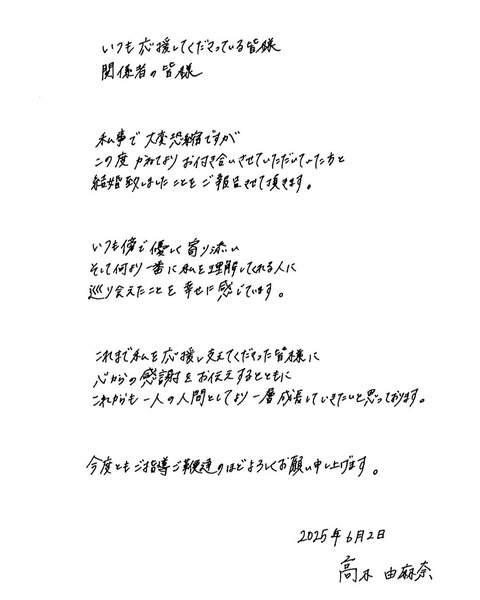 いつも応援してくださっている皆様
関係者の皆様
私事で大変恐縮ですが
この度 かねてよりお付き合いさせていただいていた方と
結婚致しましたことをご報告させて頂きます。
いつも傍で優しく寄り添い
そして何より一番に私を理解してくれる人に
巡り会えたことを幸せに感じています。
これまで私を応援し支えてくださった皆様に
心からの感謝をお伝えするとともに
これからも一人の人間としてより一層成長していきたいと思っております。
今度ともご指導ご鞭撻のほどよろしくお願い申し上げます。
2025年6月2日
高木 由麻奈